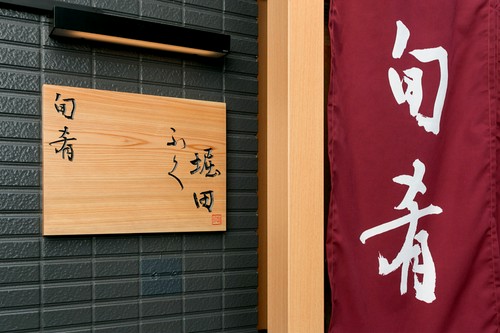 旬肴
堀田
ふく
旬肴